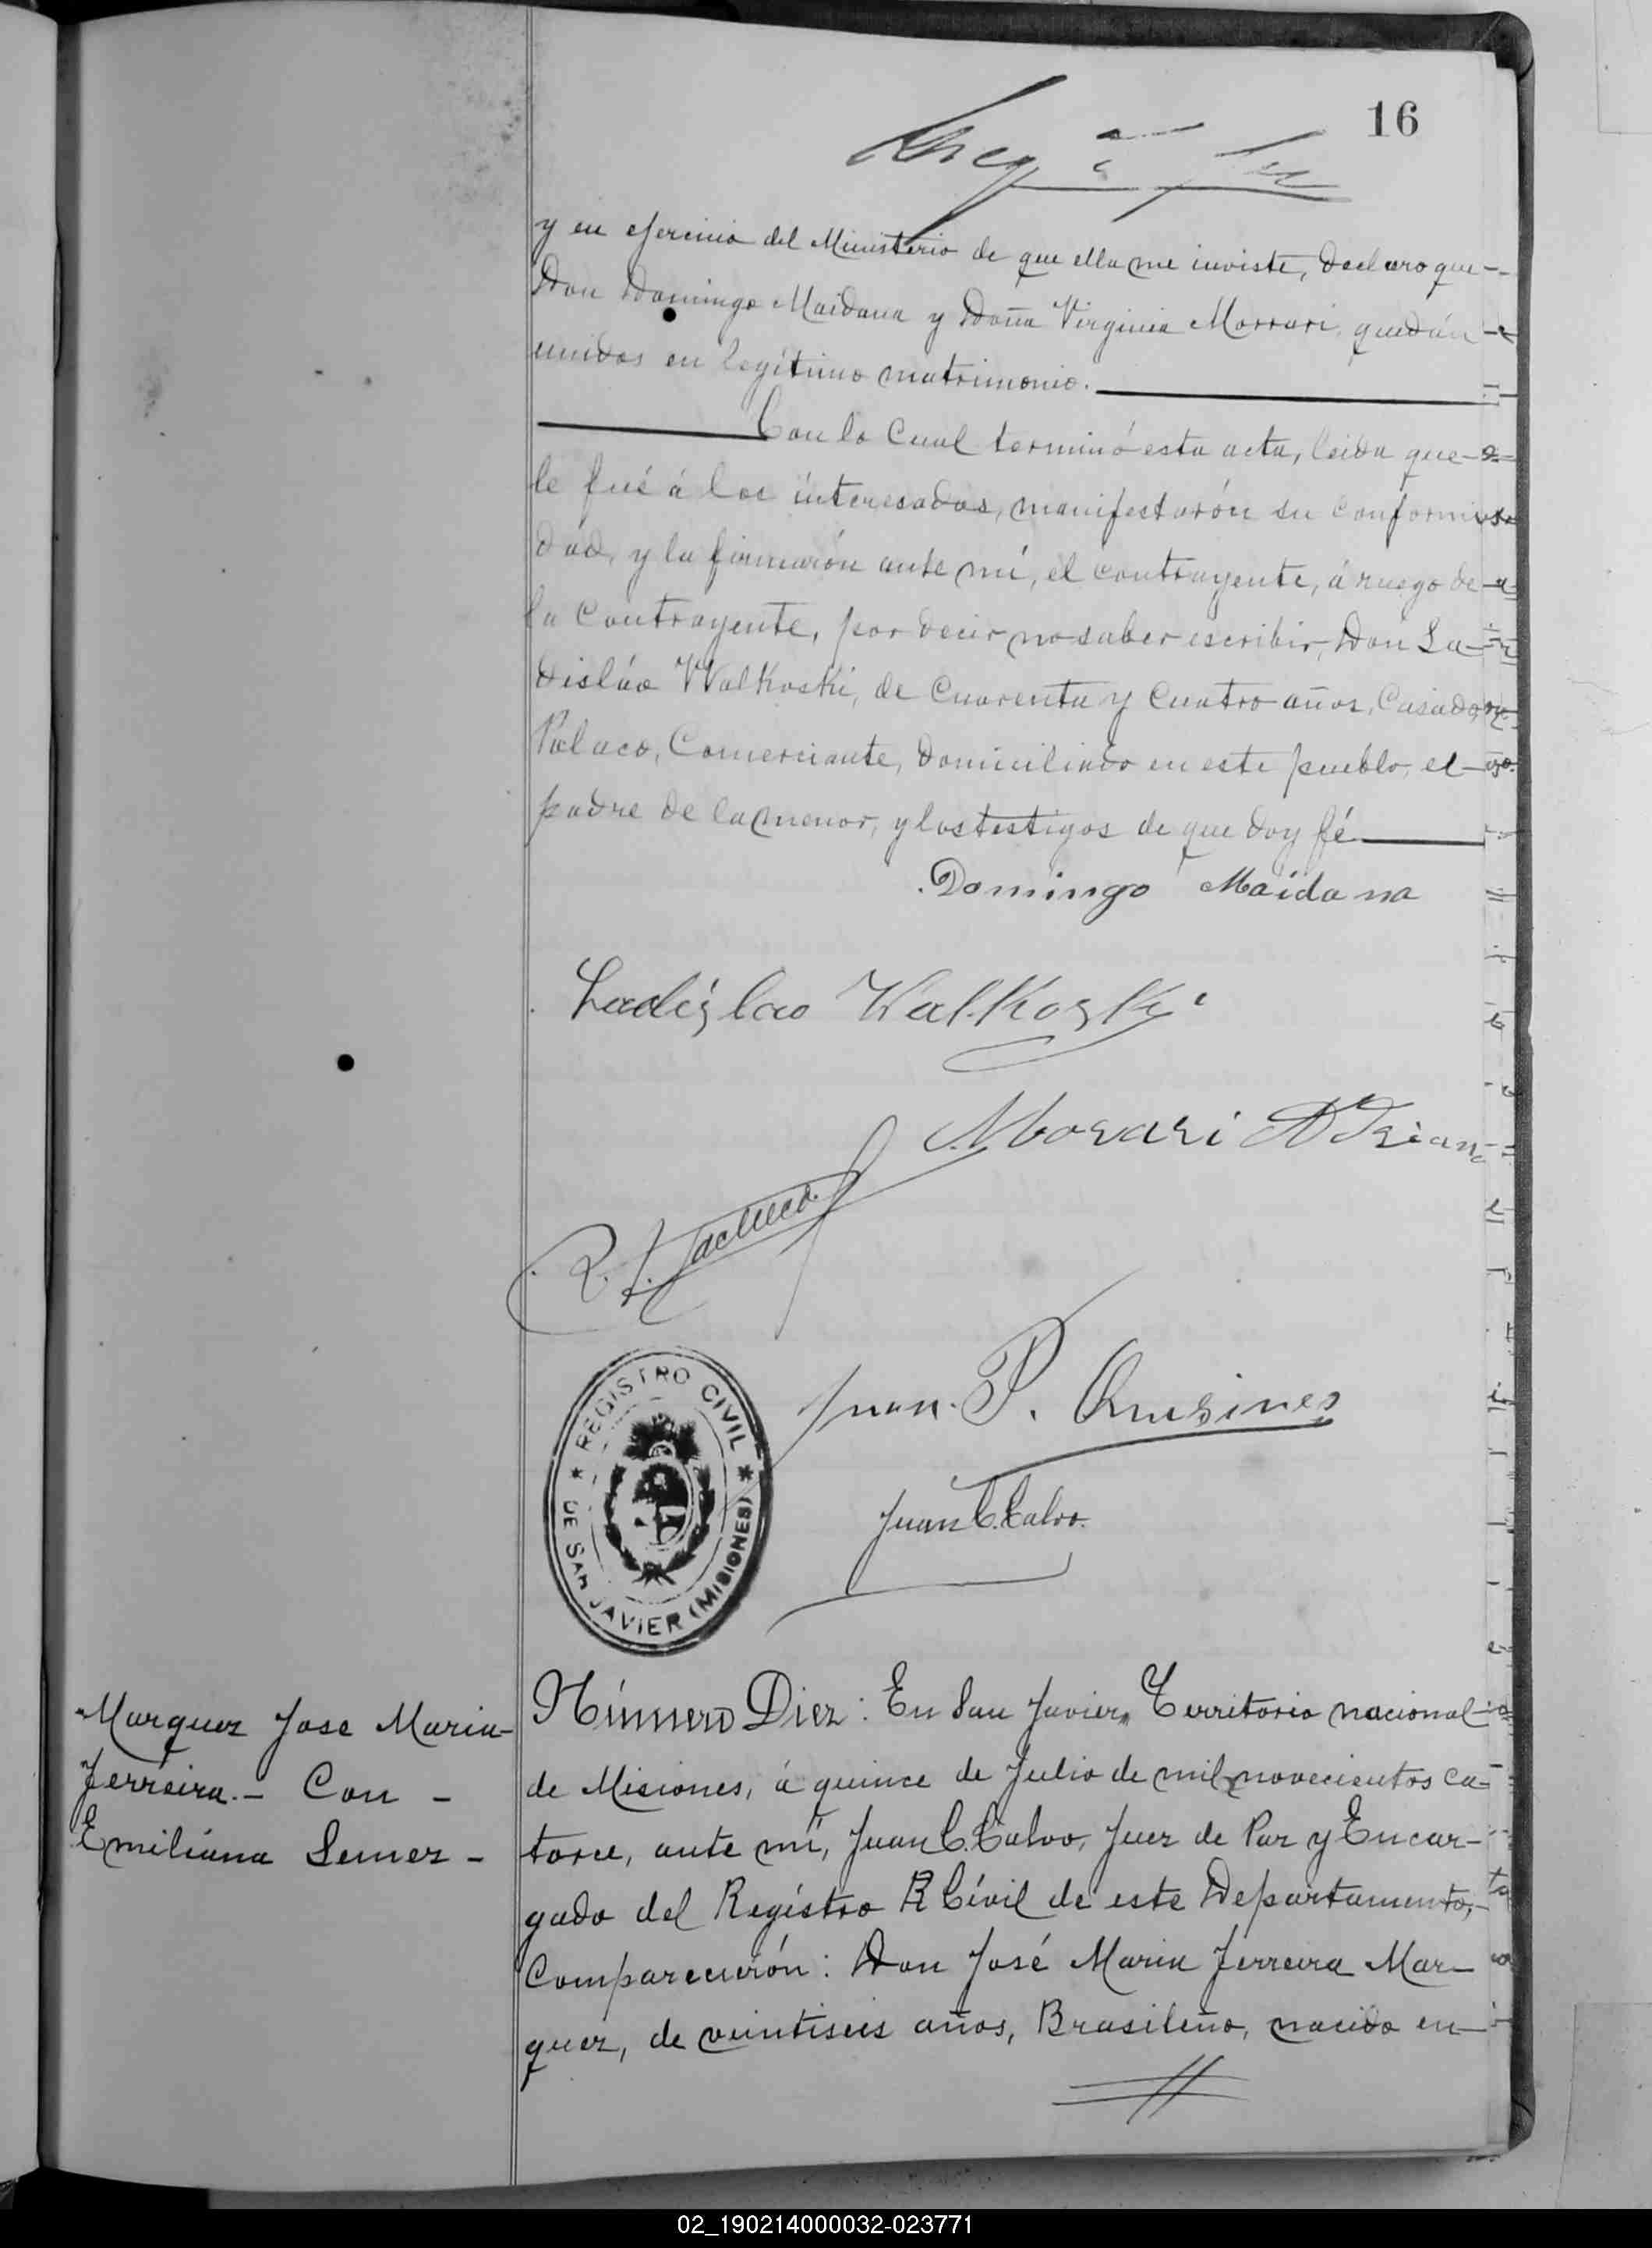 16
y en ejercicio del Ministerio de que ella me inviste, declaro que
Don Domingo Maidana y Doña Virginia Morrari, quedán
unidos en legítimo matrimonio.
Con lo cual terminó esta acta, leida que
le fué á los interesados, manifestarón su conformi
dad, y la firmarón ante mí, el contrayente, á ruego de
la contrayente, por decir no saber escribir, Don La-
disláo Walkoski, de cuarenta y cuatro años, Casado,
Polaco, Comerciante, domiciliado en este pueblo, el
padre de la menor, y los testigos de que doy fé
Domingo Maidana
Ladislao Walkoski
Morari Adriano
R. Pacheco
Juan P.
REGISTRO CIVIL
DE SAN JAVIER (MISIONES)
Juan C. Calvo.
Marquez Jose Maria-
Ferreira.- Con -
Emiliana Semez -
Número Diez: En San Javier, Territorio nacional
de Misiones, á quince de Julio de mil novecientos ca-
torce, ante mí, Juan C. Calvo, Juez de Paz y Encar-
gado del Registro R Civil de este Departamento,
Comparecierón: Don José Maria Ferreira Mar-
quez, de veintiseis años, Brasileño, nacido en
02_190214000032-023771